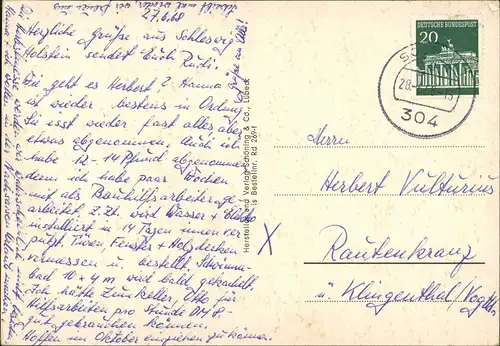 27.6.68
Herzliche Grüße aus Schleswig
Holstein sendet Euch Rudi.
Wie geht es Herbert? Hanna
ist wieder bestens in Ordnung
Sie isst wieder fast alles aber
etwas abgenommen. Auch ich
habe 12-14 Pfund abgenommen
denn ich habe paar Wochen
mit als Bauhilfsarbeiter
gearbeitet z. Zt. wird Wasser + Elektro
installiert in 14 Tagen innen ver
putzt. Türen, Fenster + Holzdecken
vermessen u. bestellt Schwimm
bad 10 x 4 m wird bald gekachelt.
Ich hätte Zunkeller, Otto für
Hilfsarbeiten pro Stunde DM 8.-
gut gebrauchen können.
Hoffen im Oktober einziehen zu können.
Grüße an alle!
Herstellung und Verlag Schöning & Co., Lübeck
Bestellnr. Rd 2694
DEUTSCHE BUNDESPOST
20
28.
304
Herrn
Herbert Vulturius
Rautenkranz
ü. Klingenthal/Vogtl.
X